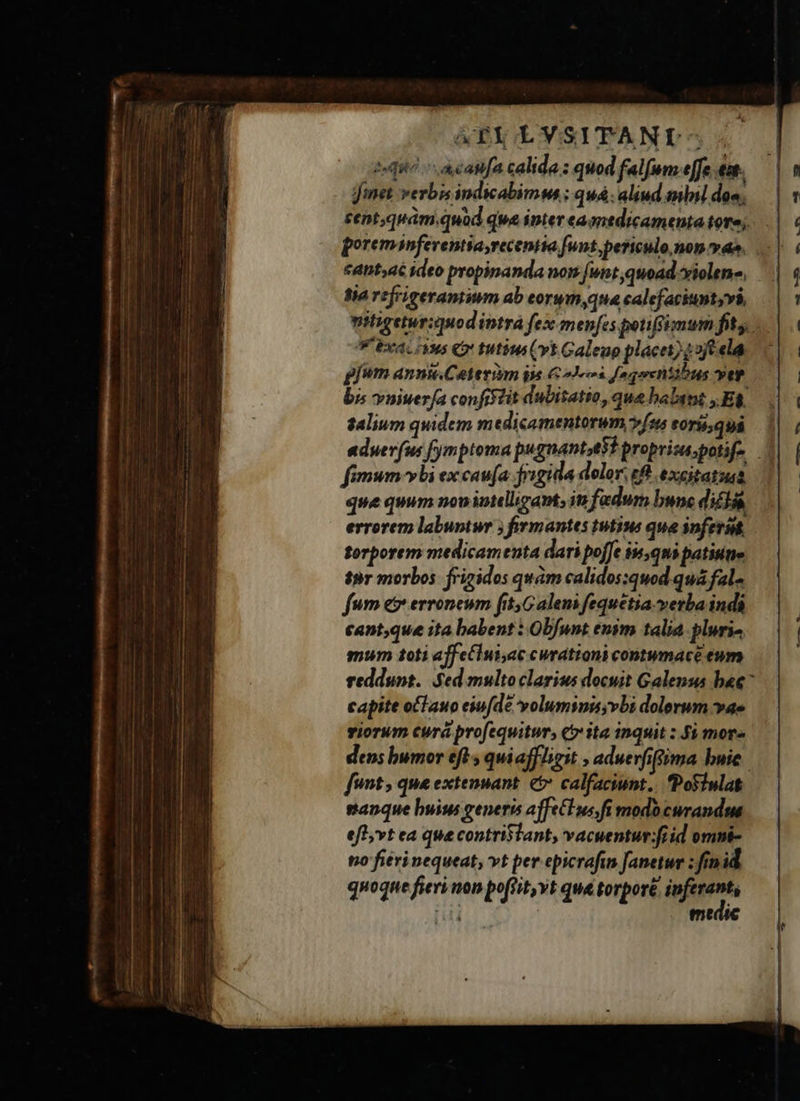 LVSITANI
a causa calida: quod falsum esse
verbis indicabimus: quá. aliud mihil do
cent, quàm. quòd quæ inter ea medicamenta tor
porem inferentia, recentia sunt, periculo, non va
cant, ac ideo propinanda non sunt, quoad violen-
tia refrigerantium ab eorum, quæ calefaciunt, vi,
mitigetur: quod intra sex menses potissimum fit,
& tutius (vt Galeno placet) post ela
psum annũ. Cæterùm ijs sequentibus ver
bis vniuersa consistit dubitatio, quæ habent, Et
talium quidem medicamentorum, vsus eorũ, quà
aduersus symptoma pugnant, est proprius, potis-
simum vbi ex causa frigida dolor, est excitatus
quæ quum non intelligant, in fœdum hunc
errorem labuntur, firmantes tutius quæ inferũt
torporem medicamenta dari posse iis, qui patiun-
tur morbos frigidos quàm calidos: quod quá fal-
sum & erroneum sit, Galeni sequẽtia verba indi
cant, quæ ita habent: Obsunt enim talia pluri-
mum toti affectui, ac curationi contumacẽ eum
reddunt. Sed multo clarius docuit Galenus hæc
capite octauo eiusdẽ voluminis, vbi dolorum va-
riorum curã prosequitur, & ita inquit: Si mor-
dens humor est, qui affligit, aduersissima huic
sunt, quæ extenuant & calfaciunt. Postulat
nanque huius generis affectus, si modò curandus
est, vt ea quæ contristant, vacuentur: si id omni-
no fieri nequeat, vt per epicrasin sanetur: sin id
quoque fieri non possit, vt quæ torporẽ inferant,
medic